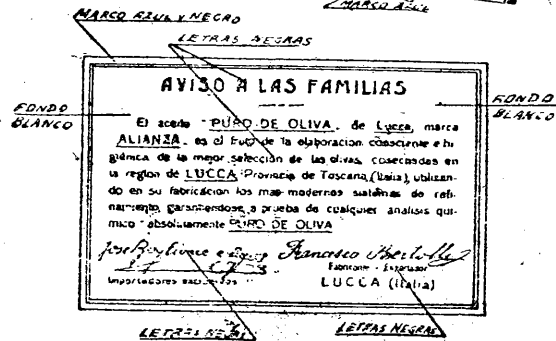 MARCO AZUL
MARCO AZUL Y NEGRO
LETRAS NEGRAS
AVISO A LAS FAMILIAS
FONDO BLANCO
FONDO BLANCO
El aceite "PURO DE OLIVA" de Lucca, marca
ALIANZA, es el fruto de la elaboración consciente e hi
giénica de la mejor selección de las olivas, cosechadas en
la region de LUCCA Provincia de Toscana, (Italia), utilizan-
do en su fabricacion los mas modernos sistemas de refi-
namiento, garantiendose a prueba de cualquier analisis qui-
mico absolutamente PURO DE OLIVA
Francisco Bertolli
Fabricante - Exportador
Importadores
LUCCA (Italia)
LETRAS NEGRAS
LETRAS NEGRAS